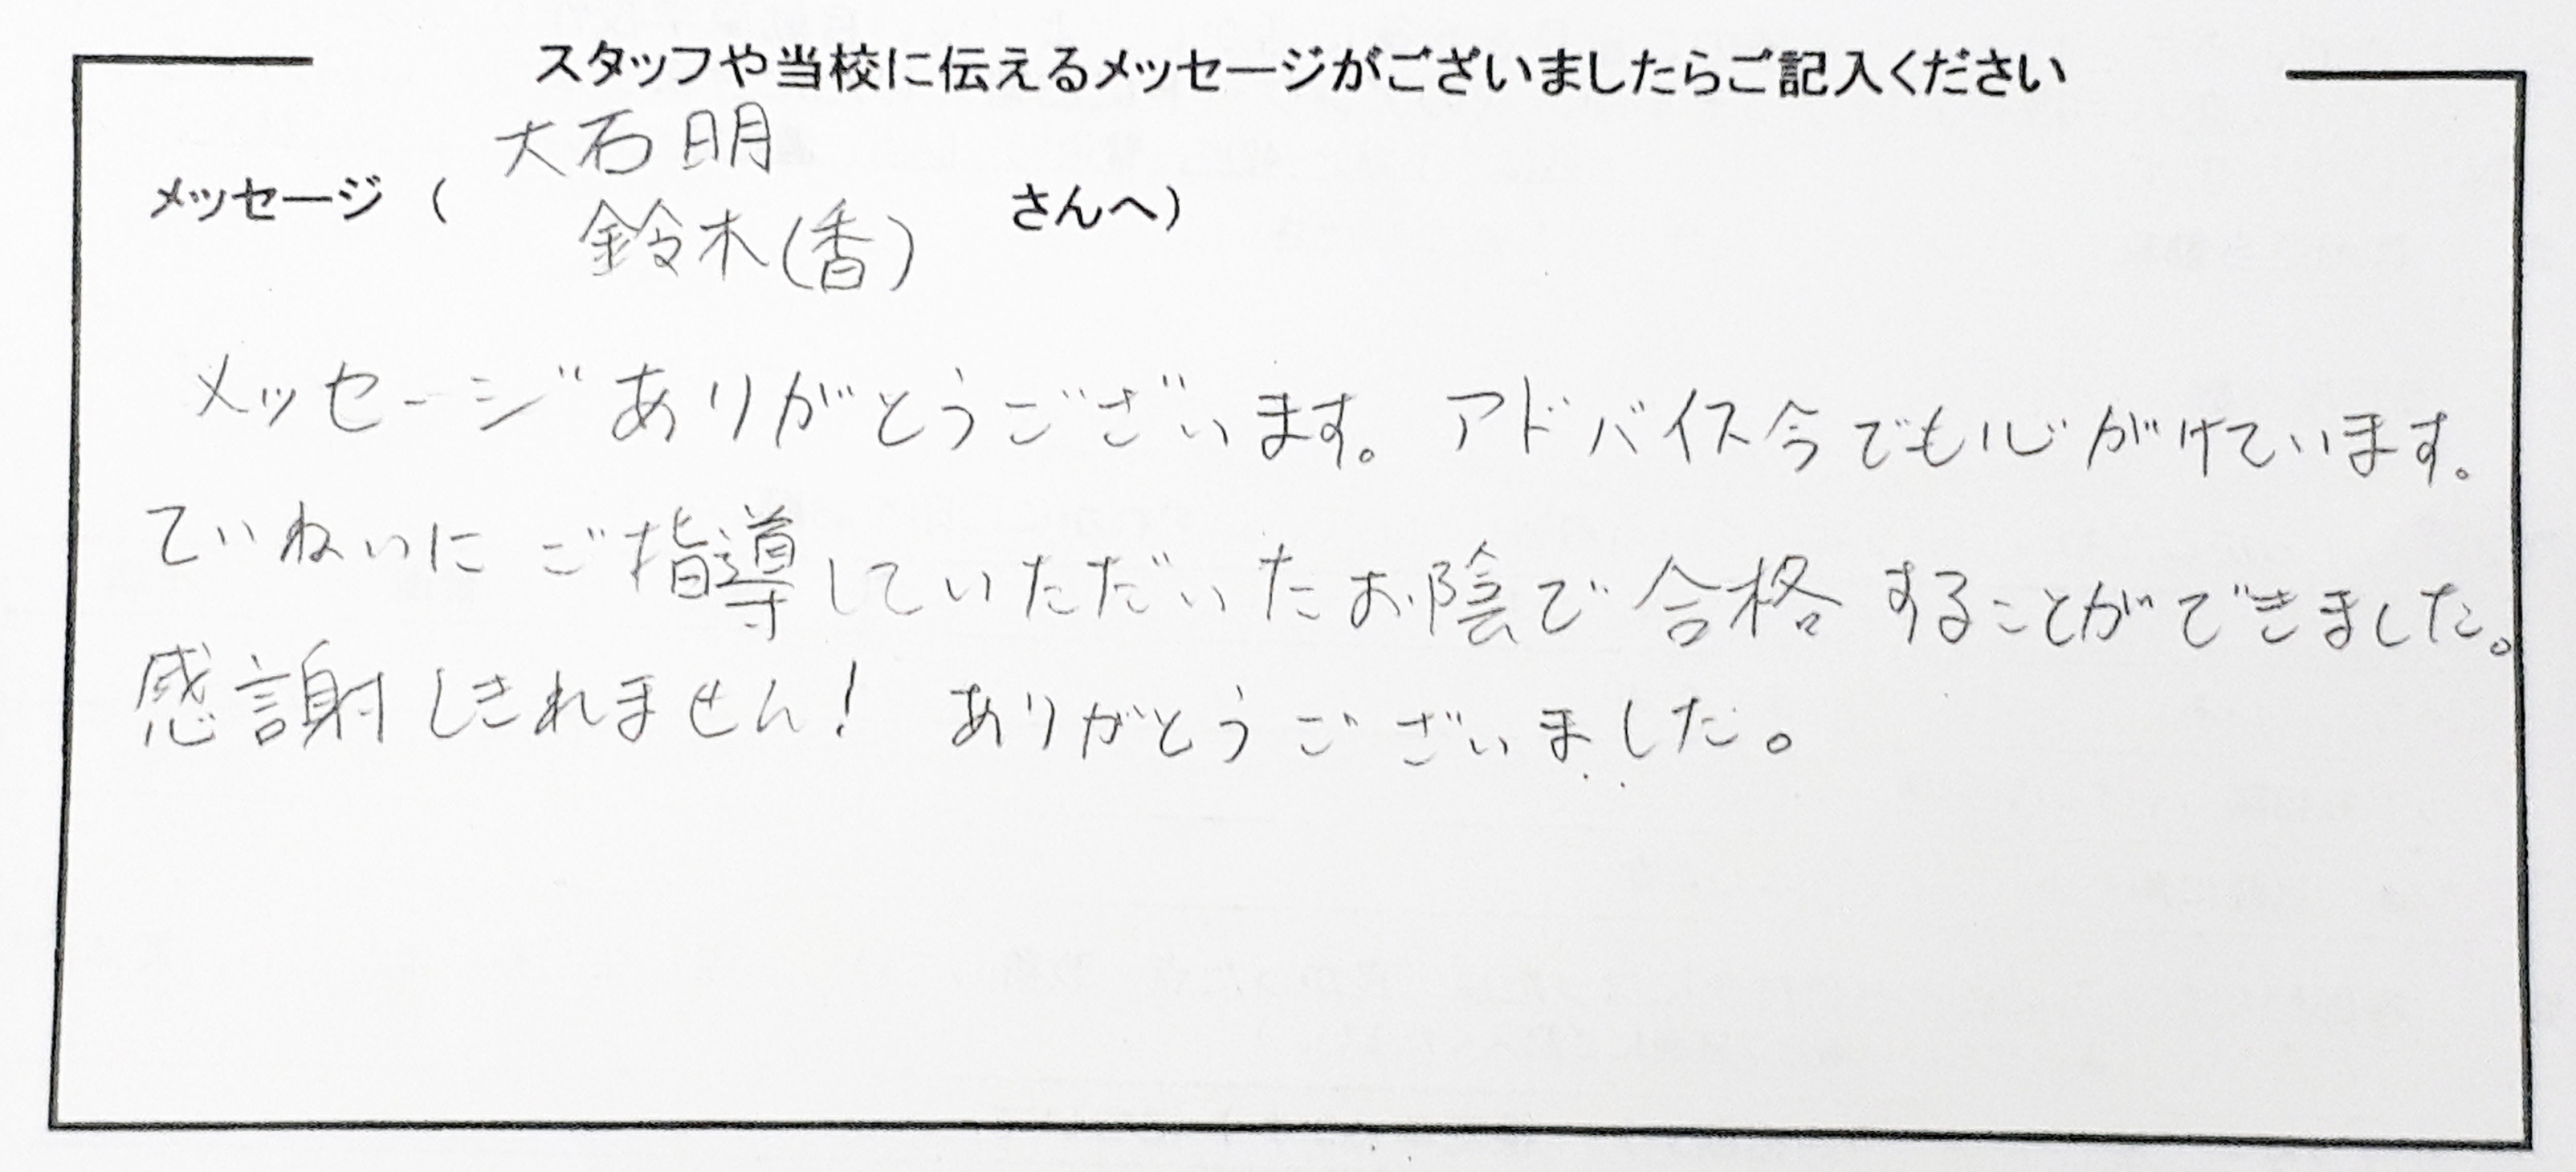 スタッフや当校に伝えるメッセージがございましたらご記入ください
大石明
メッセージ（ 鈴木(香) さんへ）
メッセージありがとうございます。アドバイス今でも心がけています。
ていねいにご指導していただいたお陰で合格することができました。
感謝しきれません! ありがとうございました。